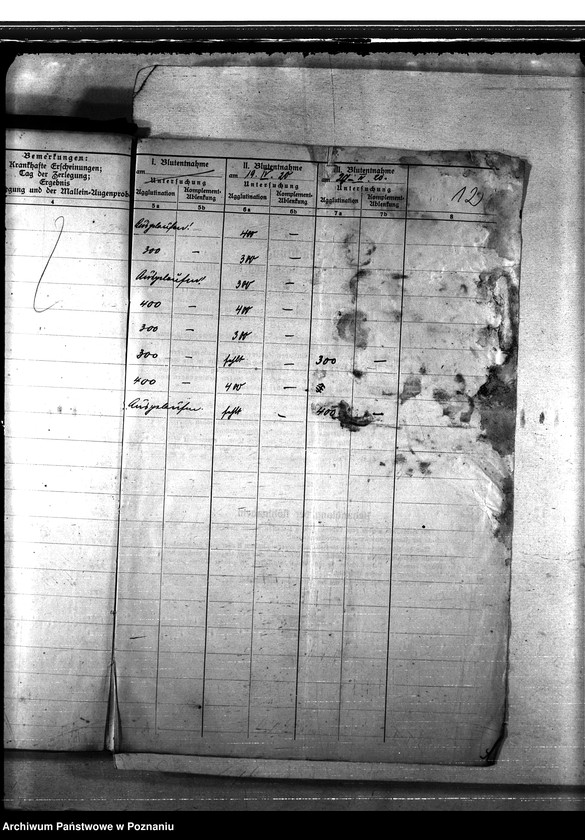 Bemerkungen:
Krankhafte Erscheinungen;
Tag der Zerlegung;
Ergebnis
gung und der Mallein-Augenprobe
4
I. Blutentnahme
am
Untersuchung
Agglutination
Komplement-Ablenkung
5a
5b
II. Blutentnahme
am 19. IV. 20
Untersuchung
Agglutination
Komplement-Ablenkung
6a
6b
III. Blutentnahme
am 20.
Untersuchung
Agglutination
Komplement-Ablenkung
7a
7b
8
Ausgelaufen! 400 —
300 — 300 —
Ausgelaufen! 300 —
400 — 400 —
300 — 300 —
300 — fehlt 300 —
400 — 400 —
Ausgelaufen fehlt — 400 —
Archiwum Państwowe w Poznaniu